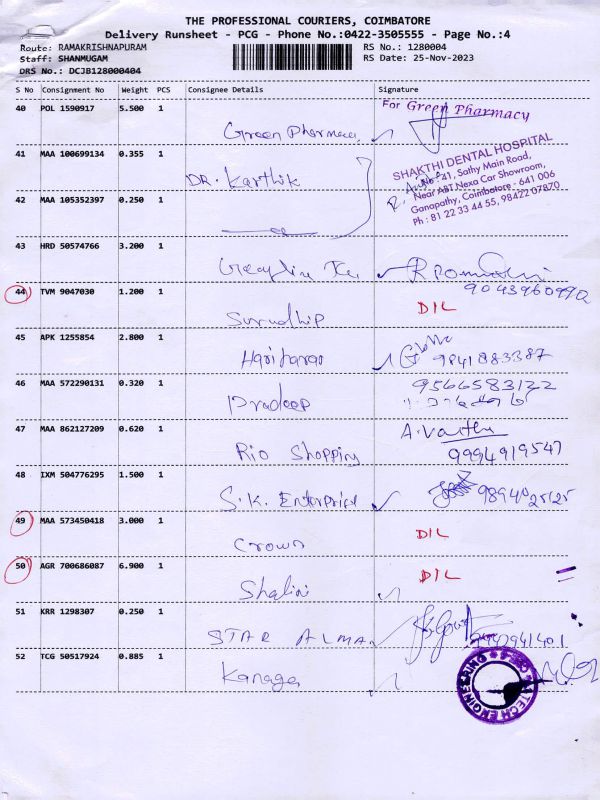 THE PROFESSIONAL COURIERS, COIMBATORE
Delivery Runsheet - PCG - Phone No.:0422-3505555 - Page No.:4
Route: RAMAKRISHNAPURAM RS No.: 1280004
Staff: SHANMUGAM RS Date: 25-Nov-2023
DRS No.: DCJB128000404
S No Consignment No Weight PCS Consignee Details Signature
40 POL 1590917 5.500 1 For Green Pharmacy
Green Pharmacy
41 MAA 100699134 0.355 1 SHAKTHI DENTAL HOSPITAL
DR. Karthik No: 41, Sathy Main Road,
Near ABT Nexa Car Showroom,
42 MAA 105352397 0.250 1 Ganapathy, Coimbatore - 641 006
Ph : 81 22 33 44 55, 98422 07870
43 HRD 50574766 3.200 1
44 TVM 9047030 1.200 1 9043960990
DIL
45 APK 1255854 2.800 1
9841883387
46 MAA 572290131 0.320 1
Pradeep
47 MAA 862127209 0.620 1
Rio Shopping 9994919547
48 IXM 504776295 1.500 1
S.K. Enterprise
49 MAA 573450418 3.000 1
Crown DIL
50 AGR 700686087 6.900 1 DIL
Shalini
51 KRR 1298307 0.250 1
STAR
52 TCG 50517924 0.885 1
Kanaga